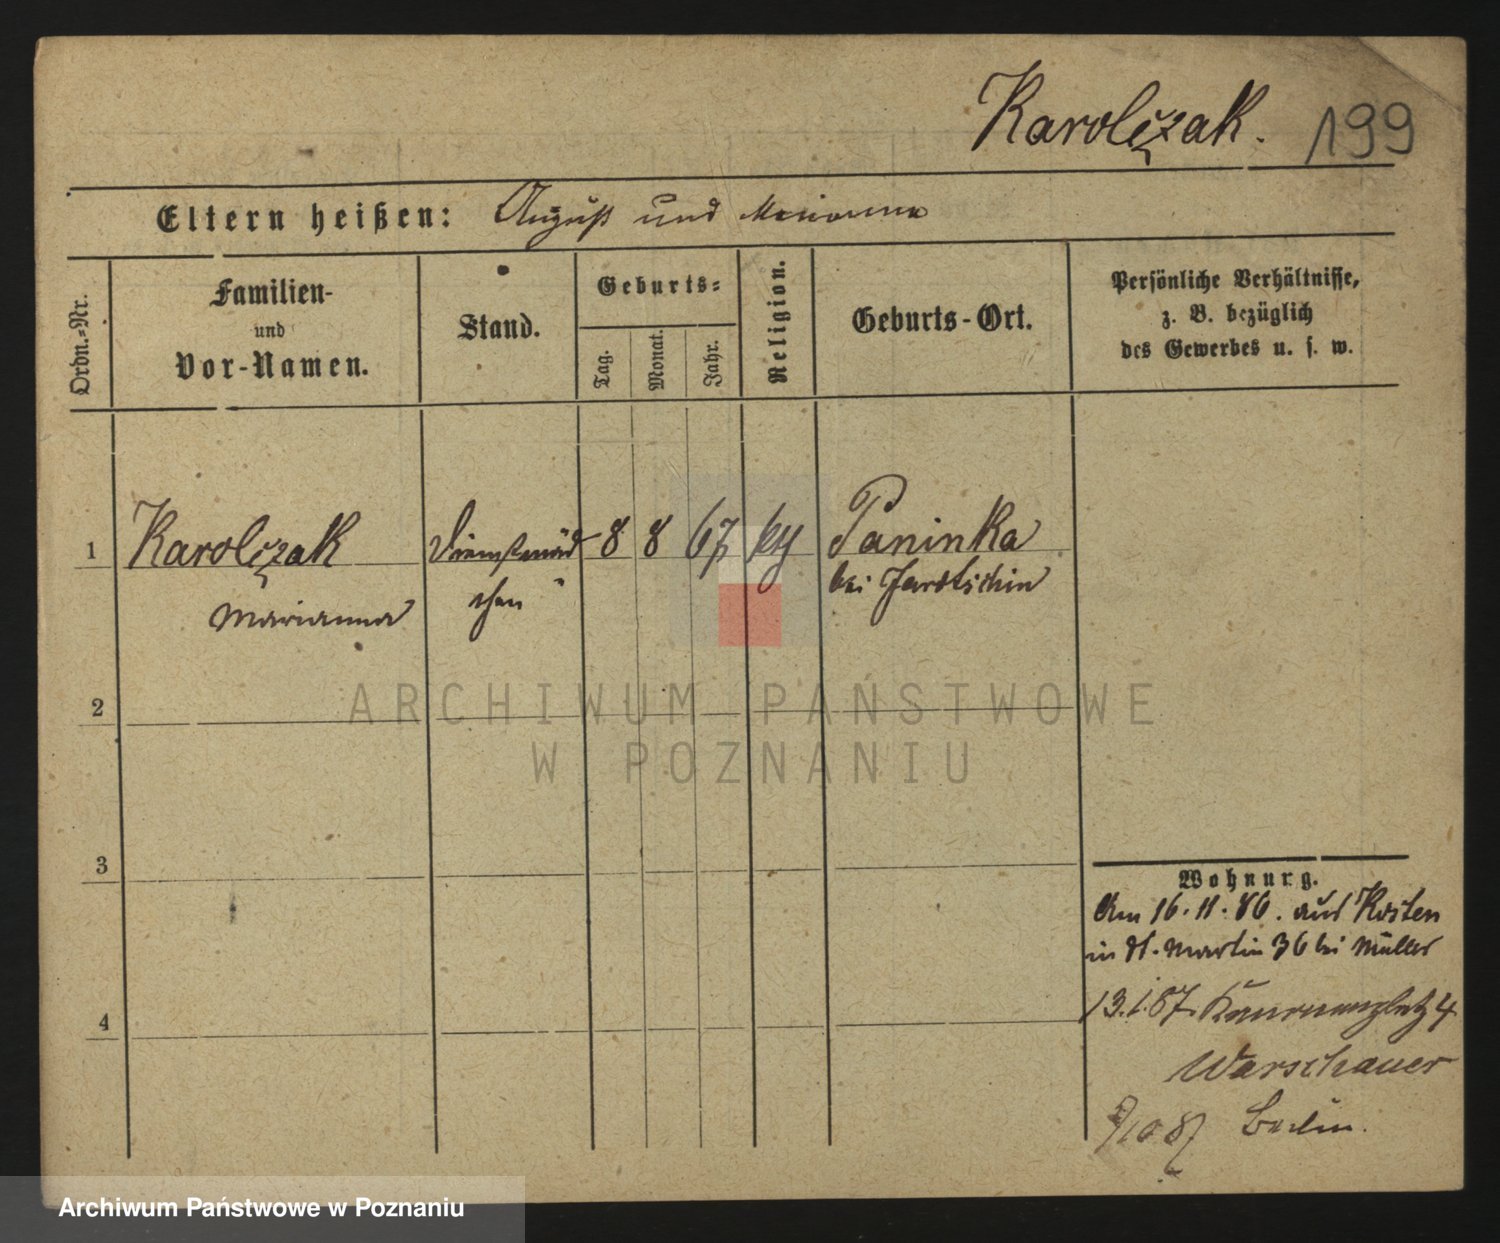 Karolczak. 199
Eltern heißen: August und Marianna
Ordn.-Nr.
Familien-
und
Vor-Namen.
Stand.
Geburts-
Tag.
Monat.
Jahr.
Religion.
Geburts-Ort.
Persönliche Verhältnisse,
z. B. bezüglich
des Gewerbes u. s. w.
1 Karolczak Dienstmäd 8 8 67 Paninka
Marianna chen bei Jarotschin
2
3
4
Wohnung.
Am 16. 11. 86. aus Kosten
in St. Martin 36 bei Müller
13.1.87. Kanonenplatz 4
Warschauer
9/10 87 Berlin.
ARCHIWUM PAŃSTWOWE
W POZNANIU
Archiwum Państwowe w Poznaniu